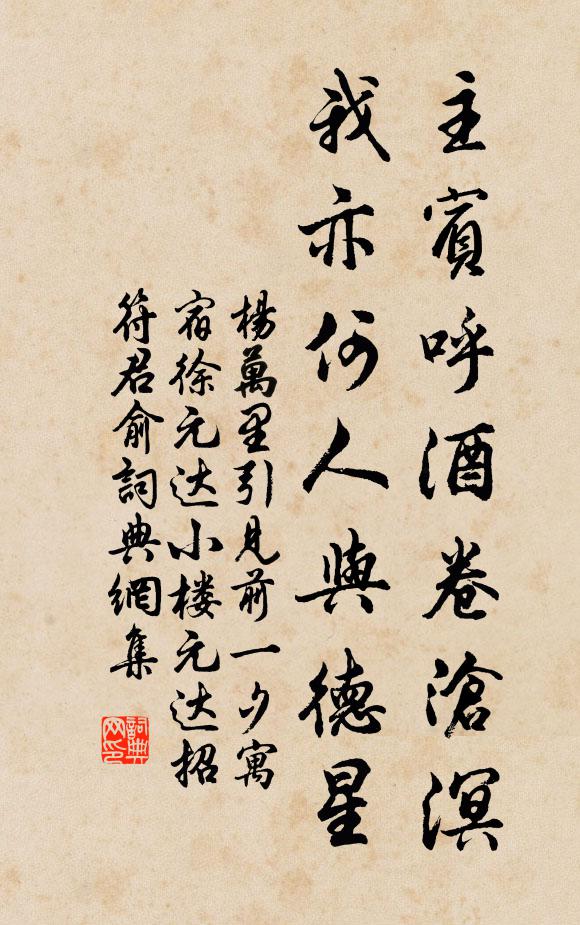 主賓呼酒卷滄溟
我亦何人與德星
楊萬里引見前一夕寓
宿徐元达小楼元达招
符君俞詞典網集
詞典网印